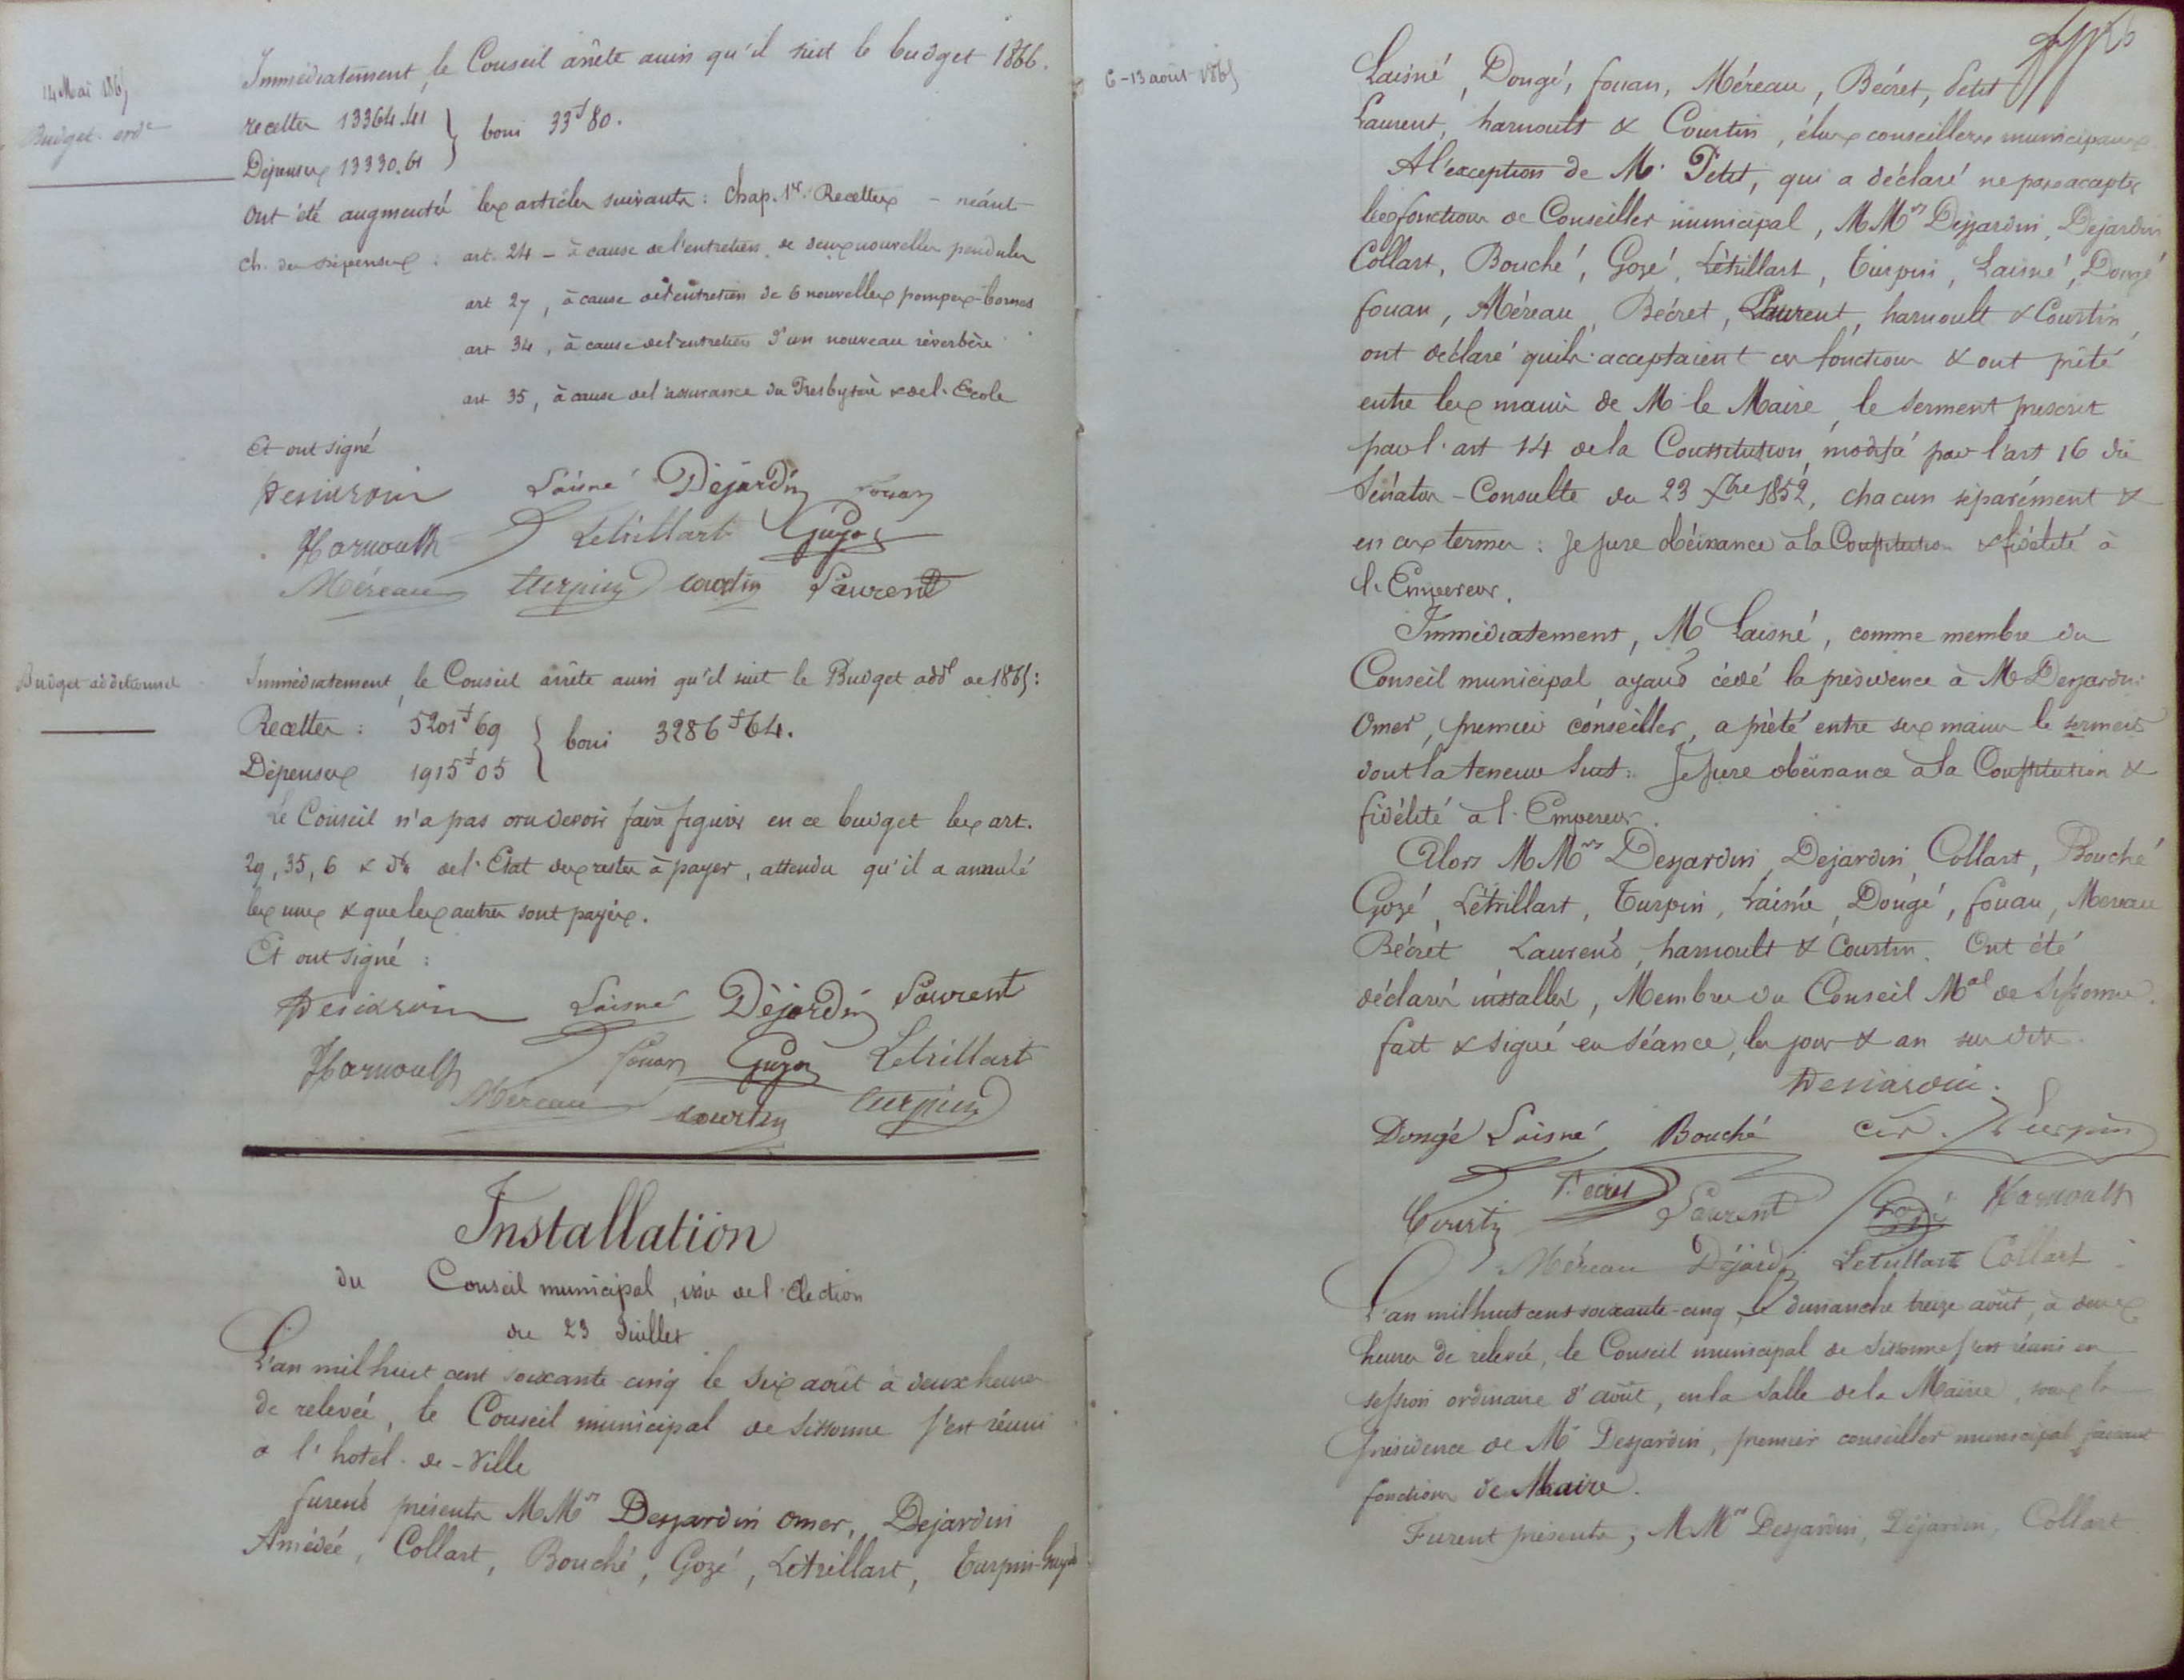 14 Mai 1865
Budget ord^re
Immédiatement, le Conseil arrête ainsi qu'il suit le budget 1866.
recettes 13364.41 } boni 33^f 80.
Dépenses 13330.61
Ont été augmentés les articles suivants : Chap. 1^er Recettes – néant
ch. des dépenses : art. 24 – à cause de l'entretien de deux nouvelles pendules
art 27, à cause de l'entretien de 6 nouvelles pompes-bornes
art 34, à cause de l'entretien d'un nouveau réverbère
art 35, à cause de l'assurance du Presbytère & de l'Ecole
Et ont signé
Desjardin Laisné Déjardin Fouan
Harnoult Letrillart Guyot
Méreau Turpin Courtin Laurent
Budget additionnel
Immédiatement, le Conseil arrête ainsi qu'il suit le Budget add^l de 1865 :
Recettes : 5201^f 69 } boni 3286^f 64.
Dépenses 1915^f 05
Le Conseil n'a pas cru devoir faire figurer en ce budget les art.
29, 35, 6 & de l'Etat des restes à payer, attendu qu'il a annulé
les uns & que les autres sont payés.
Et ont signé :
Desjardin Laisné Déjardin Laurent
Harnoult Fouan Guyot Letrillart
Méreau Courtin Turpin
Installation
du Conseil municipal, issu de l'Election
du 23 Juillet
L'an mil huit cent soixante-cinq le six août à deux heures
de relevée, le Conseil municipal de Sissonne s'est réuni
à l'hotel-de-Ville
furent présents MM^rs Desjardin Omer, Dejardin
Amédée, Collart, Bouché, Gozé, Létrillart, Turpin-Guyot
6-13 août 1865
Laisné, Dougé, fouan, Méreau, Bécret, Petit
Laurent, harnoult & Courtin, élus conseillers municipaux
A l'exception de M. Petit, qui a déclaré ne pas accepter
les fonctions de Conseiller municipal, MM^rs Desjardin, Dejardin
Collart, Bouché, Gozé, Létrillart, Turpin, Laisné, Dougé
fouan, Méreau, Bécret, Laurent, harnoult & Courtin,
ont déclaré qu'ils acceptaient ces fonctions & ont prêté
entre les mains de M. le Maire, le serment prescrit
par l'art 14 de la Constitution, modifié par l'art 16 du
Sénatus-Consulte du 23 X^bre 1852, chacun séparément &
en ces termes : Je jure obéissance à la Constitution & fidélité à
l'Empereur.
Immédiatement, M Laisné, comme membre du
Conseil municipal ayant cédé la présidence à M Desjardin
Omer, premier conseiller, a prêté entre ses mains le serment
dont la teneur suit : Je jure obéissance à la Constitution &
fidélité à l'Empereur.
Alors MM^rs Desjardin, Dejardin, Collart, Bouché
Gozé, Létrillart, Turpin, Laisné, Dougé, fouan, Mereau
Bécret Laurent, harnoult & Courtin. Ont été
déclarés installés, Membres du Conseil M^al de Sissonne.
fait & signé en séance, les jour & an susdits.
Desjardin.
Dougé Laisné Bouché Turpin
Courtin Bécret Laurent Gozé Harnoult
Méreau Déjardin Letrillart Collart
L'an mil huit cent soixante-cinq, le dimanche treize août, à deux
heures de relevée, le Conseil municipal de Sissonne s'est réuni en
session ordinaire d'août, en la Salle de la Mairie, sous la
présidence de M^r Desjardin, premier conseiller municipal faisant
fonctions de Maire.
Furent présents, MM^rs Desjardin, Déjardin, Collart